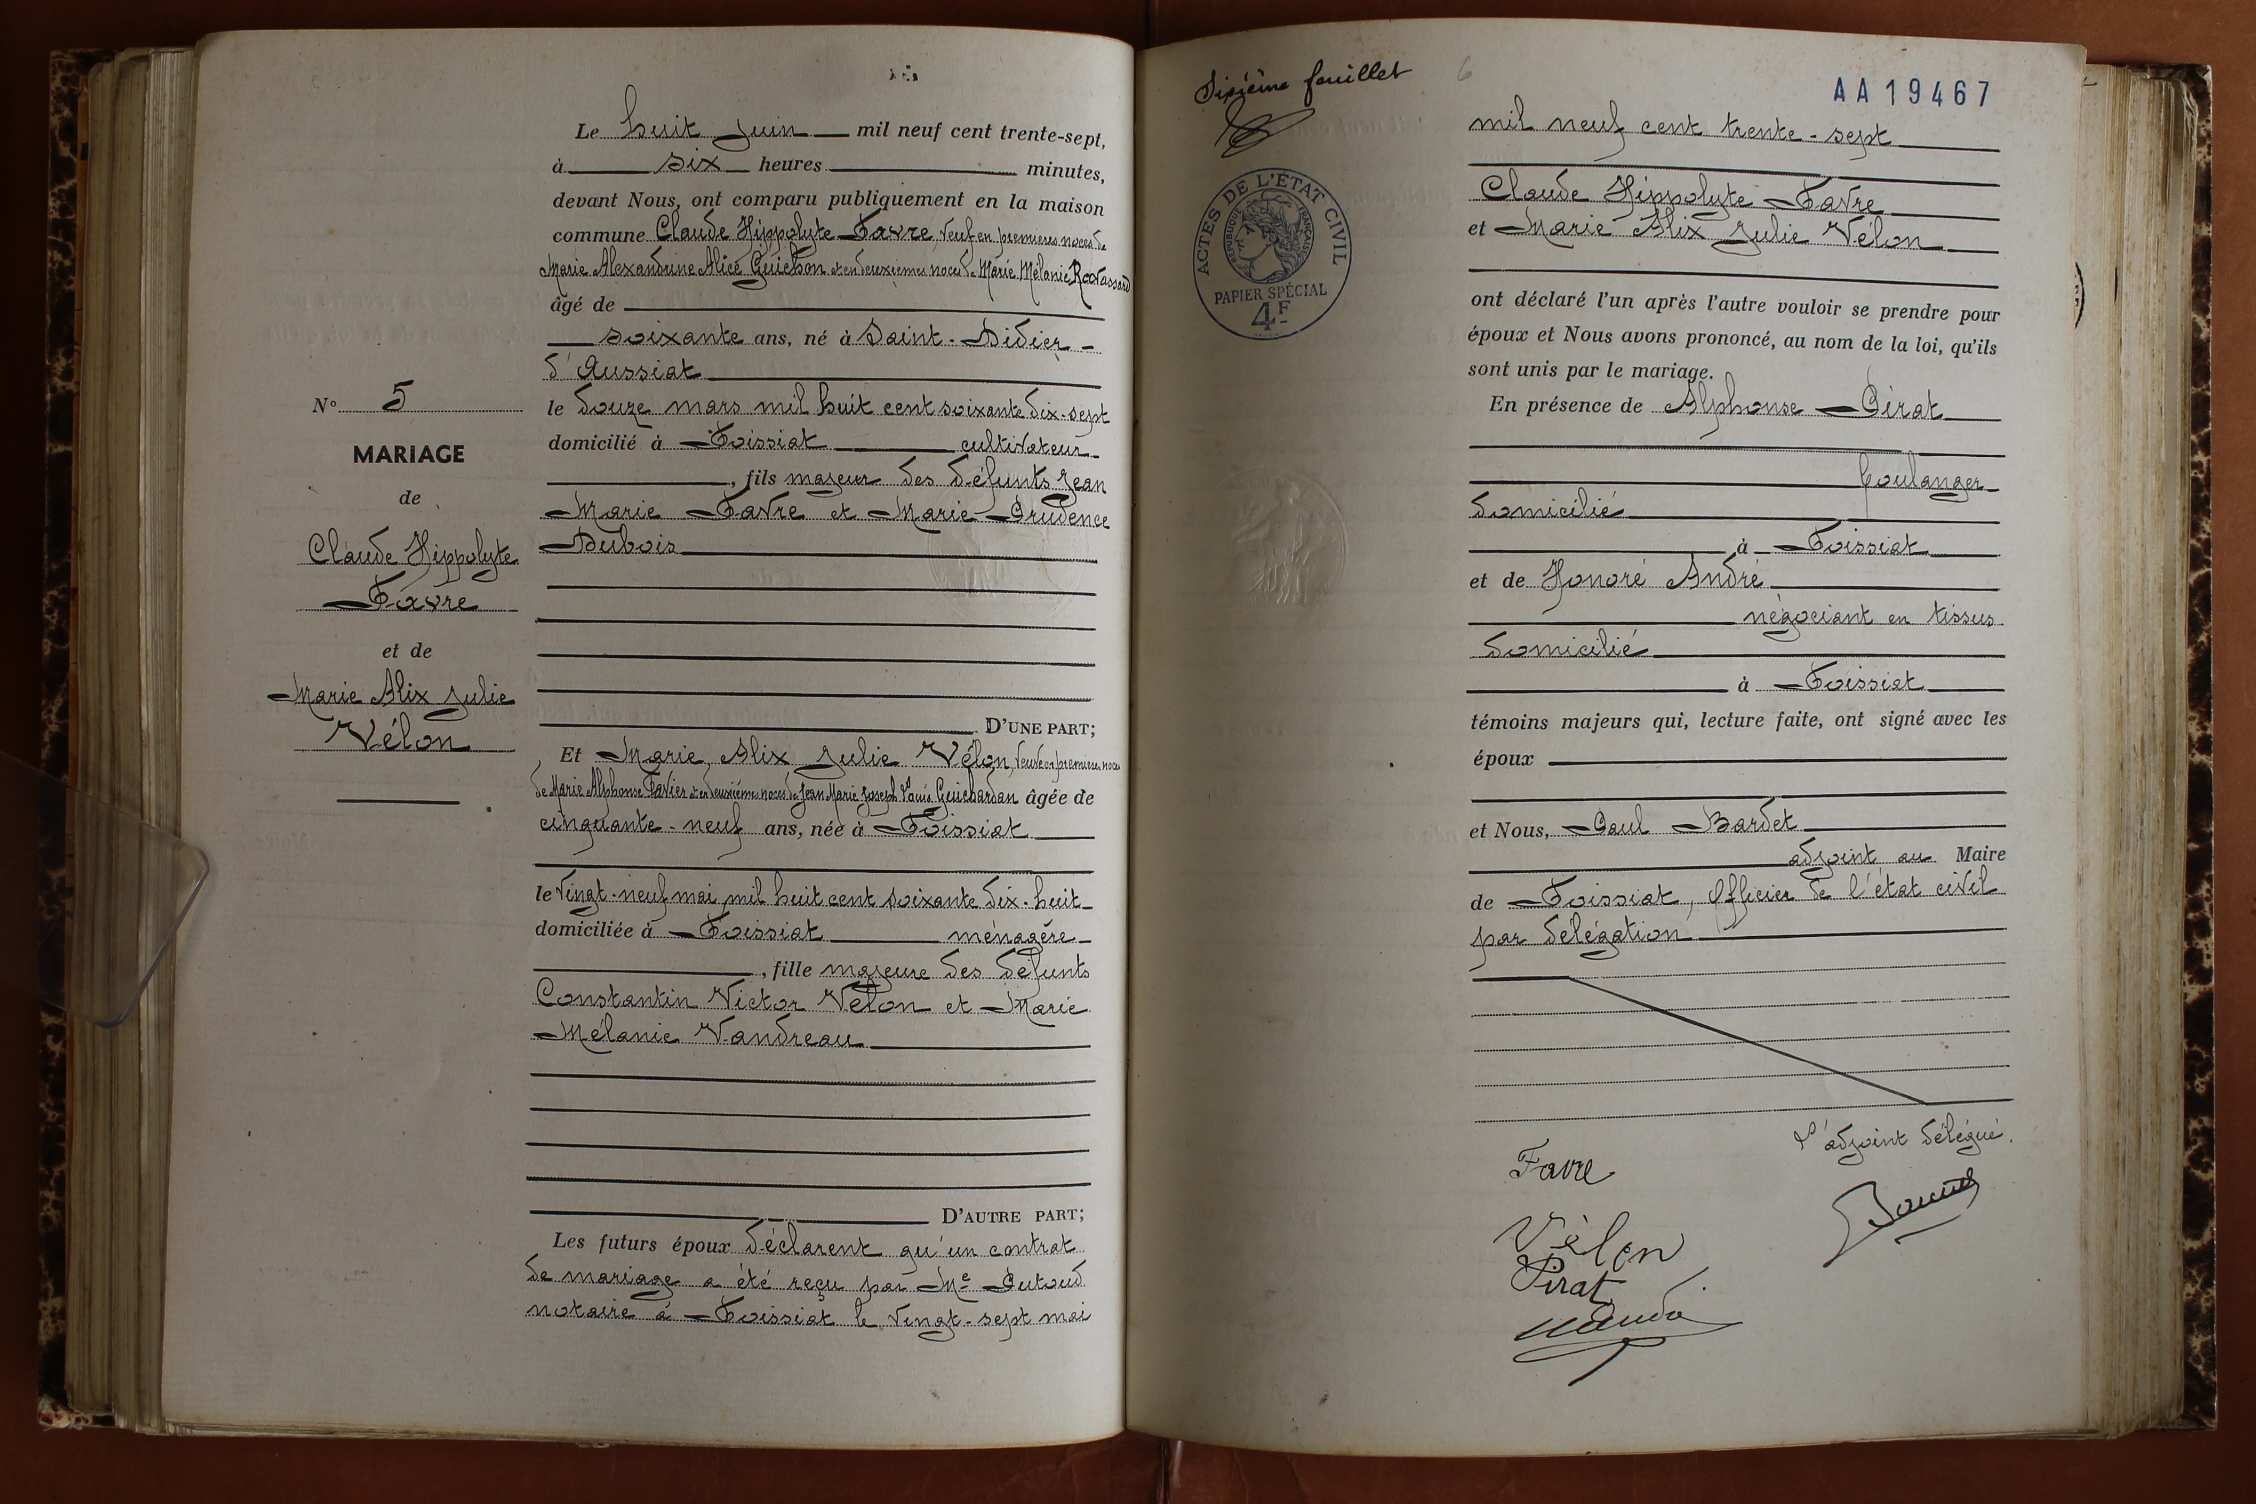 Le huit juin mil neuf cent trente-sept,
à six heures minutes,
devant Nous, ont comparu publiquement en la maison
commune Claude Hippolyte Favre, veuf en premières noces de
Marie Alexandrine Alice Guichon et en deuxièmes noces de Marie Mélanie Ravassard
âgé de
soixante ans, né à Saint-Didier-
d'Aussiat
le douze mars mil huit cent soixante dix-sept
domicilié à Foissiat cultivateur
, fils majeur des défunts Jean
Marie Favre et Marie Prudence
Dubois
D'UNE PART;
Et Marie Alix Julie Vélon, veuve en premières noces
de Marie Alphonse Favier et en deuxième noces de Jean Marie Joseph Louis Guichardan âgée de
cinquante-neuf ans, née à Foissiat
le vingt-neuf mai mil huit cent soixante dix-huit
domiciliée à Foissiat ménagère
, fille majeure des défunts
Constantin Victor Vélon et Marie
Mélanie Vandreau
D'AUTRE PART;
Les futurs époux déclarent qu'un contrat
de mariage a été reçu par Me Putoud
notaire à Foissiat le vingt-sept mai
N° 5
MARIAGE
de
Claude Hippolyte
Favre
et de
Marie Alix Julie
Vélon
Sixième feuillet
6
AA19467
ACTES DE L'ETAT CIVIL
REPUBLIQUE FRANCAISE
PAPIER SPÉCIAL
4F
mil neuf cent trente-sept
Claude Hippolyte Favre
et Marie Alix Julie Vélon
ont déclaré l'un après l'autre vouloir se prendre pour
époux et Nous avons prononcé, au nom de la loi, qu'ils
sont unis par le mariage.
En présence de Alphonse Pirat
boulanger
domicilié
à Foissiat
et de Honoré André
négociant en tissus
domicilié
à Foissiat
témoins majeurs qui, lecture faite, ont signé avec les
époux
et Nous, Paul Bardet
adjoint au Maire
de Foissiat, Officier de l'état civil
par délégation
L'adjoint délégué.
Favre
Vélon
Pirat